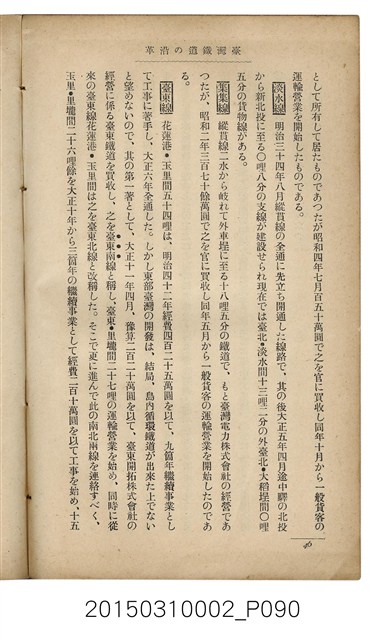 臺灣鐵道の沿革
として所有して居たものであつたが昭和四年七月百五十萬圓で之を官に買收し同年十月から一般貨客の
運輸營業を開始したものである。
淡水線　明治三十四年八月縱貫線の全通に先立ち開通した線路で、其の後大正五年四月途中驛の北投
から新北投に至る〇哩八分の支線が建設せられ現在では臺北•淡水間十三哩二分の外臺北•大稻埕間〇哩
五分の貨物線がある。
集集線　縱貫線二水から岐れて外車埕に至る十八哩五分の鐵道で、もと臺灣電力株式會社の經營であ
つたが、昭和二年三百七十餘萬圓で之を官に買收し同年五月から一般貨客の運輸營業を開始したのであ
る。
臺東線　花蓮港•玉里間五十四哩は、明治四十二年經費四百二十五萬圓を以て、九箇年繼續事業とし
て工事に著手し、大正六年全通した。しかし東部臺灣の開發は、結局、島內循環鐵道が出來た上でない
と望めないので、其の第一著として、大正十一年四月、豫算二百二十萬圓を以て、臺東開拓株式會社の
經營に係る臺東鐵道を買收し、之を臺東南線と稱し、臺東•里壠間二十七哩の運輸營業を始め、同時に從
來の臺東線花蓮港•玉里間は之を臺東北線と改稱した。そこで更に進んで此の南北兩線を連絡すべく、
玉里•里壠間二十六哩餘を大正十年から三箇年の繼續事業として經費二百十萬圓を以て工事を始め、十五
20150310002_P090